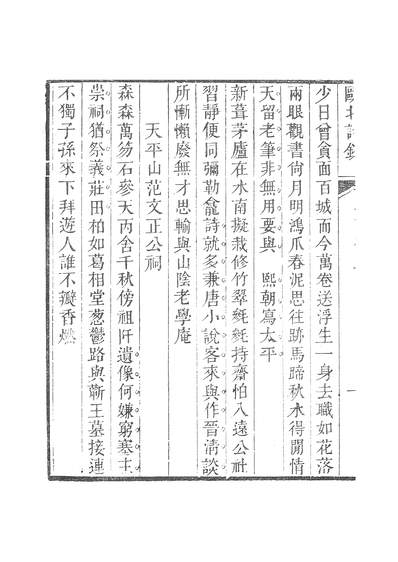 甌北詩鈔
少日曾貪面百城而今萬卷送浮生一身去職如花落
兩眼觀書尙月明鴻爪春泥思往跡馬蹄秋水得閒情
天留老筆非無用要與 熙朝寫太平
新葺茅廬在水南擬栽修竹翠毿毿持齋怕入遠公社
習靜便同彌勒龕詩就多兼唐小說客來與作晉淸談
所慚懶廢無才思輸與山陰老學庵
天平山范文正公祠
森森萬笏石參天丙舍千秋傍祖阡遺像何嫌窮塞主
崇祠猶祭義莊田柏如葛相堂葱鬱路與蘄王墓接連
不獨子孫來下拜遊人誰不瓣香燃